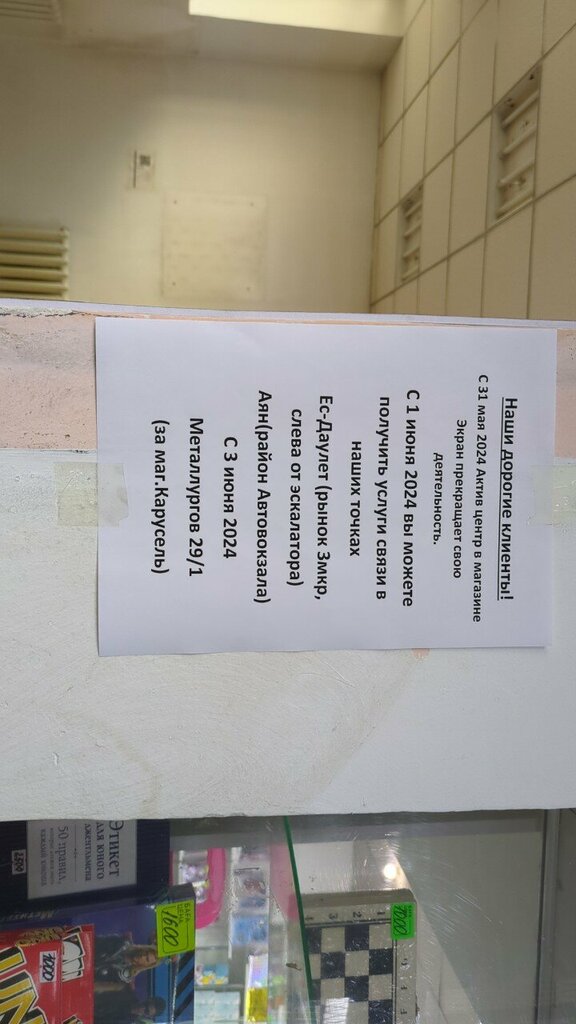 Наши дорогие клиенты!
С 31 мая 2024 Актив центр в магазине
Экран прекращает свою
деятельность.
С 1 июня 2024 вы можете
получить услуги связи в
наших точках
Ес-Даулет (рынок 3мкр,
слева от эскалатора)
Аян(район Автовокзала)
С 3 июня 2024
Металлургов 29/1
(за маг.Карусель)
Этикет
для юного
джентльмена
50 правил,
1600
1000